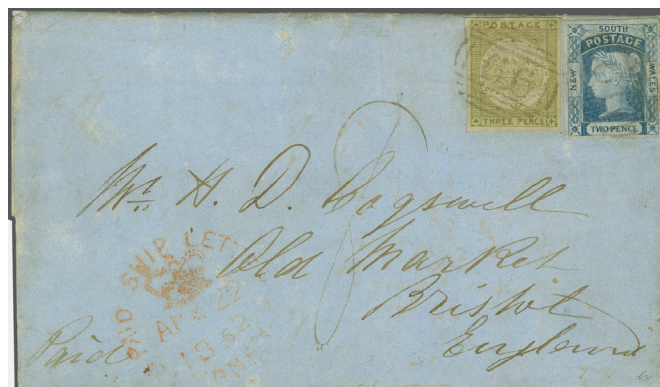 POSTAGE
THREE PENCE
SOUTH
POSTAGE
NEW
WALES
TWO PENCE
Mr. H. D. Cogswell
Old Market
Bristol
England
Paid
PAID SHIP LET
AP
1852